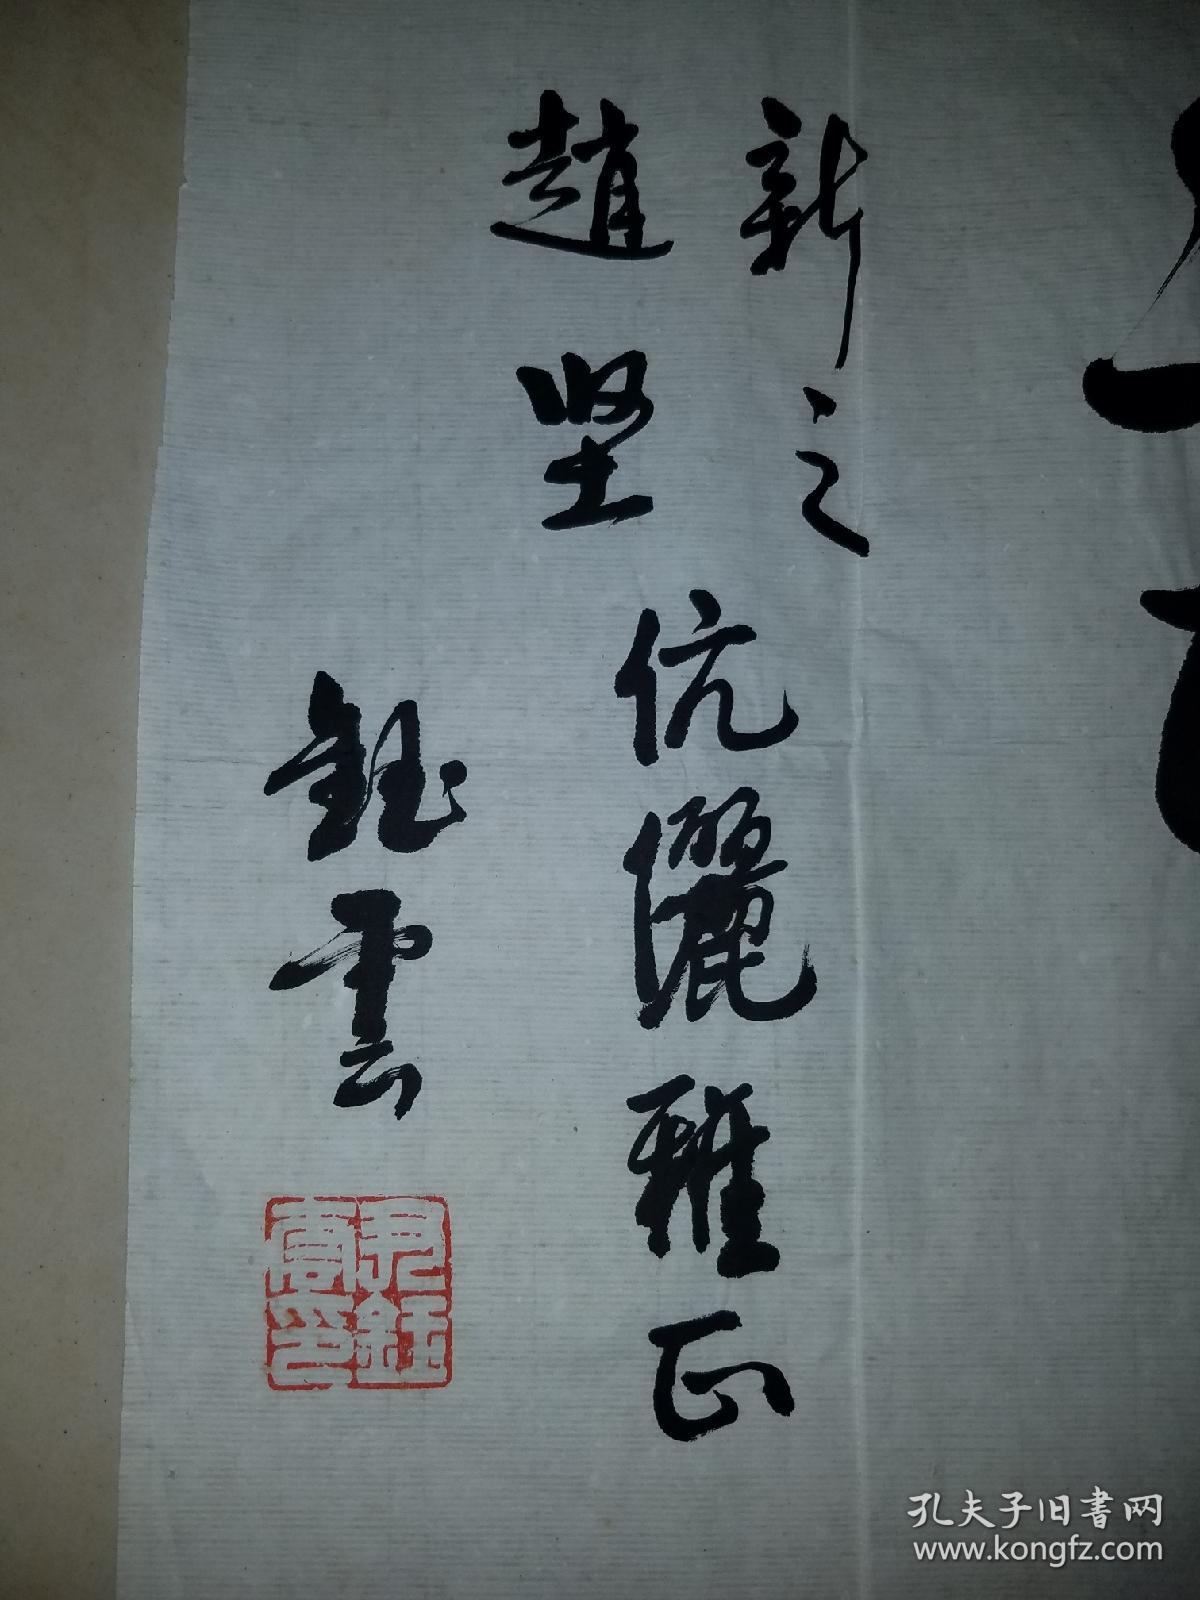 新之
趙堅
伉儷雅正
鈺雲
孔夫子旧書网
www.kongfz.com